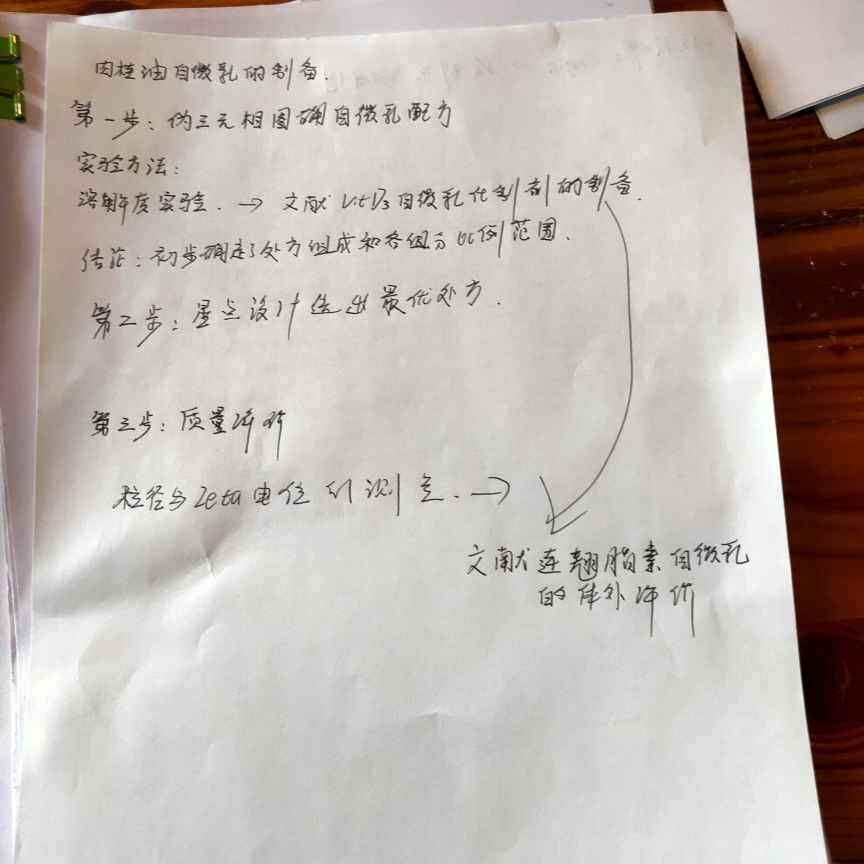 肉桂油自微乳的制备.
第一步: 伪三元相图确自微乳配方
实验方法:
溶解度实验. → 文献 VitD3自微乳化制剂的制备.
结论: 初步确定了处方组成和各组分比例范围.
第二步: 星点设计选出最优处方.
第三步: 质量评价
粒径与Zeta电位的测定. →
文献 连翘脂素自微乳
的体外评价